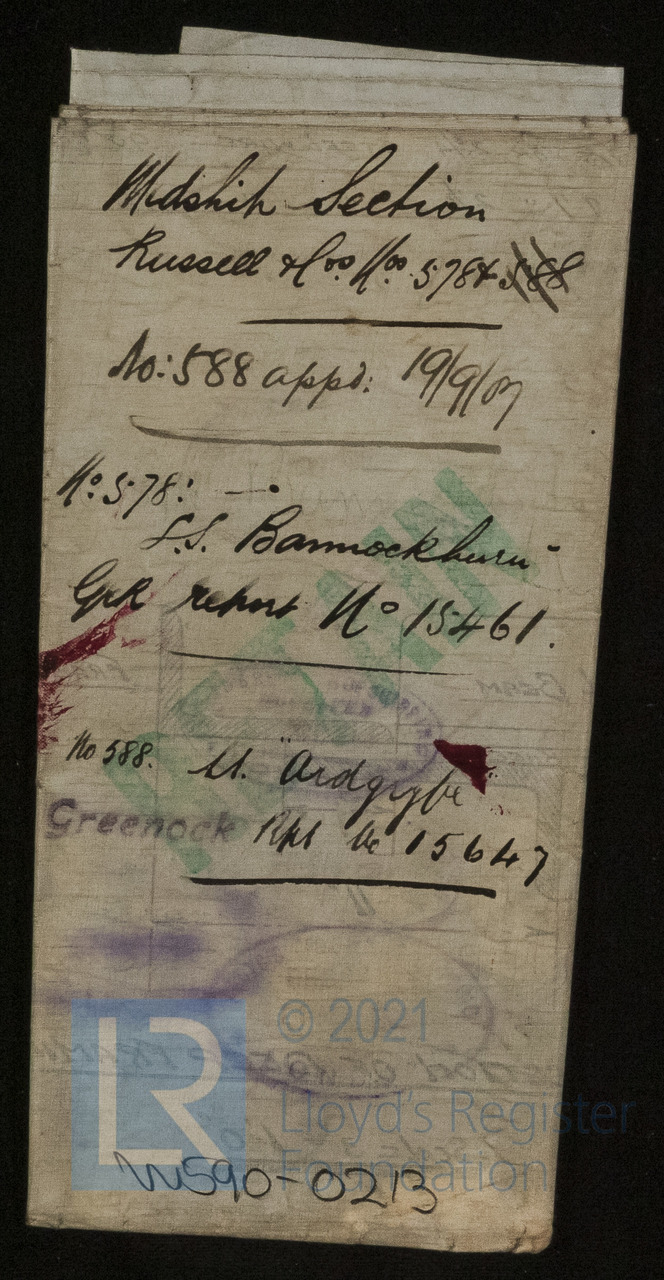 Midship Section
Russell & Cos. Nos. 578 & 588
No: 588 appd: 19/9/07
No. 578:
S.S. "Bannockburn"
Grk report No 15461.
No 588.
"Ardgryfe"
Greenock Rpt No 15647
RETAIN
LR
© 2021
Lloyd's Register
Foundation
W590-0213